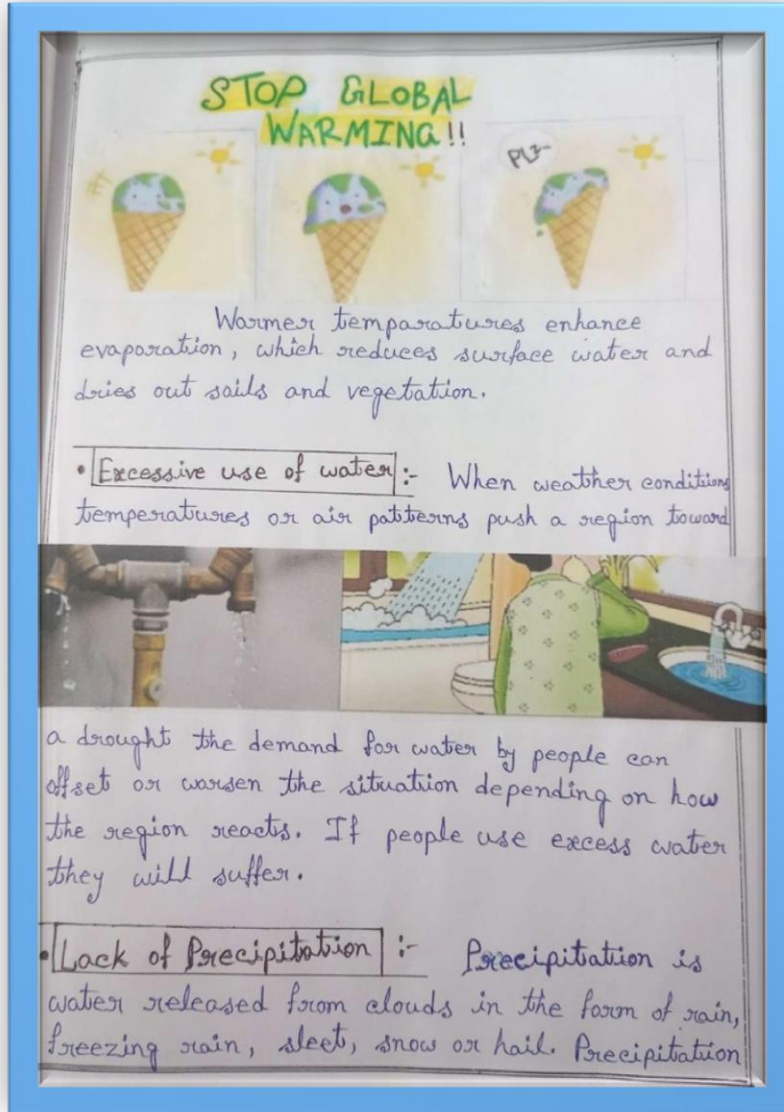 STOP GLOBAL
WARMING!!
PLZ
Warmer temparatures enhance
evaporation, which reduces surface water and
dries out soils and vegetation.
• Excessive use of water :- When weather conditions
temperatures or air patterns push a region toward
a drought the demand for water by people can
offset or worsen the situation depending on how
the region reacts. If people use excess water
they will suffer.
• Lack of Precipitation :- Precipitation is
water released from clouds in the form of rain,
freezing rain, sleet, snow or hail. Precipitation